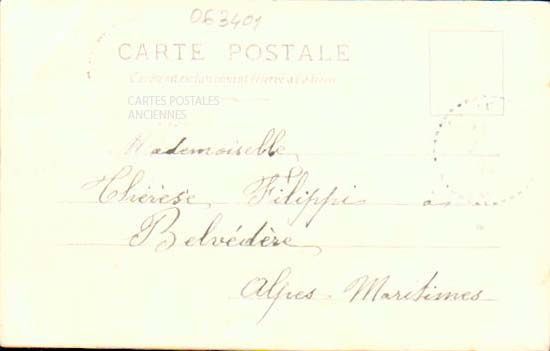 063401
CARTE POSTALE
Ce côté est exclusivement réservé à l'adresse
CARTES POSTALES
ANCIENNES
Mademoiselle
Thérèse Filippi à
Belvédère
Alpes-Maritimes